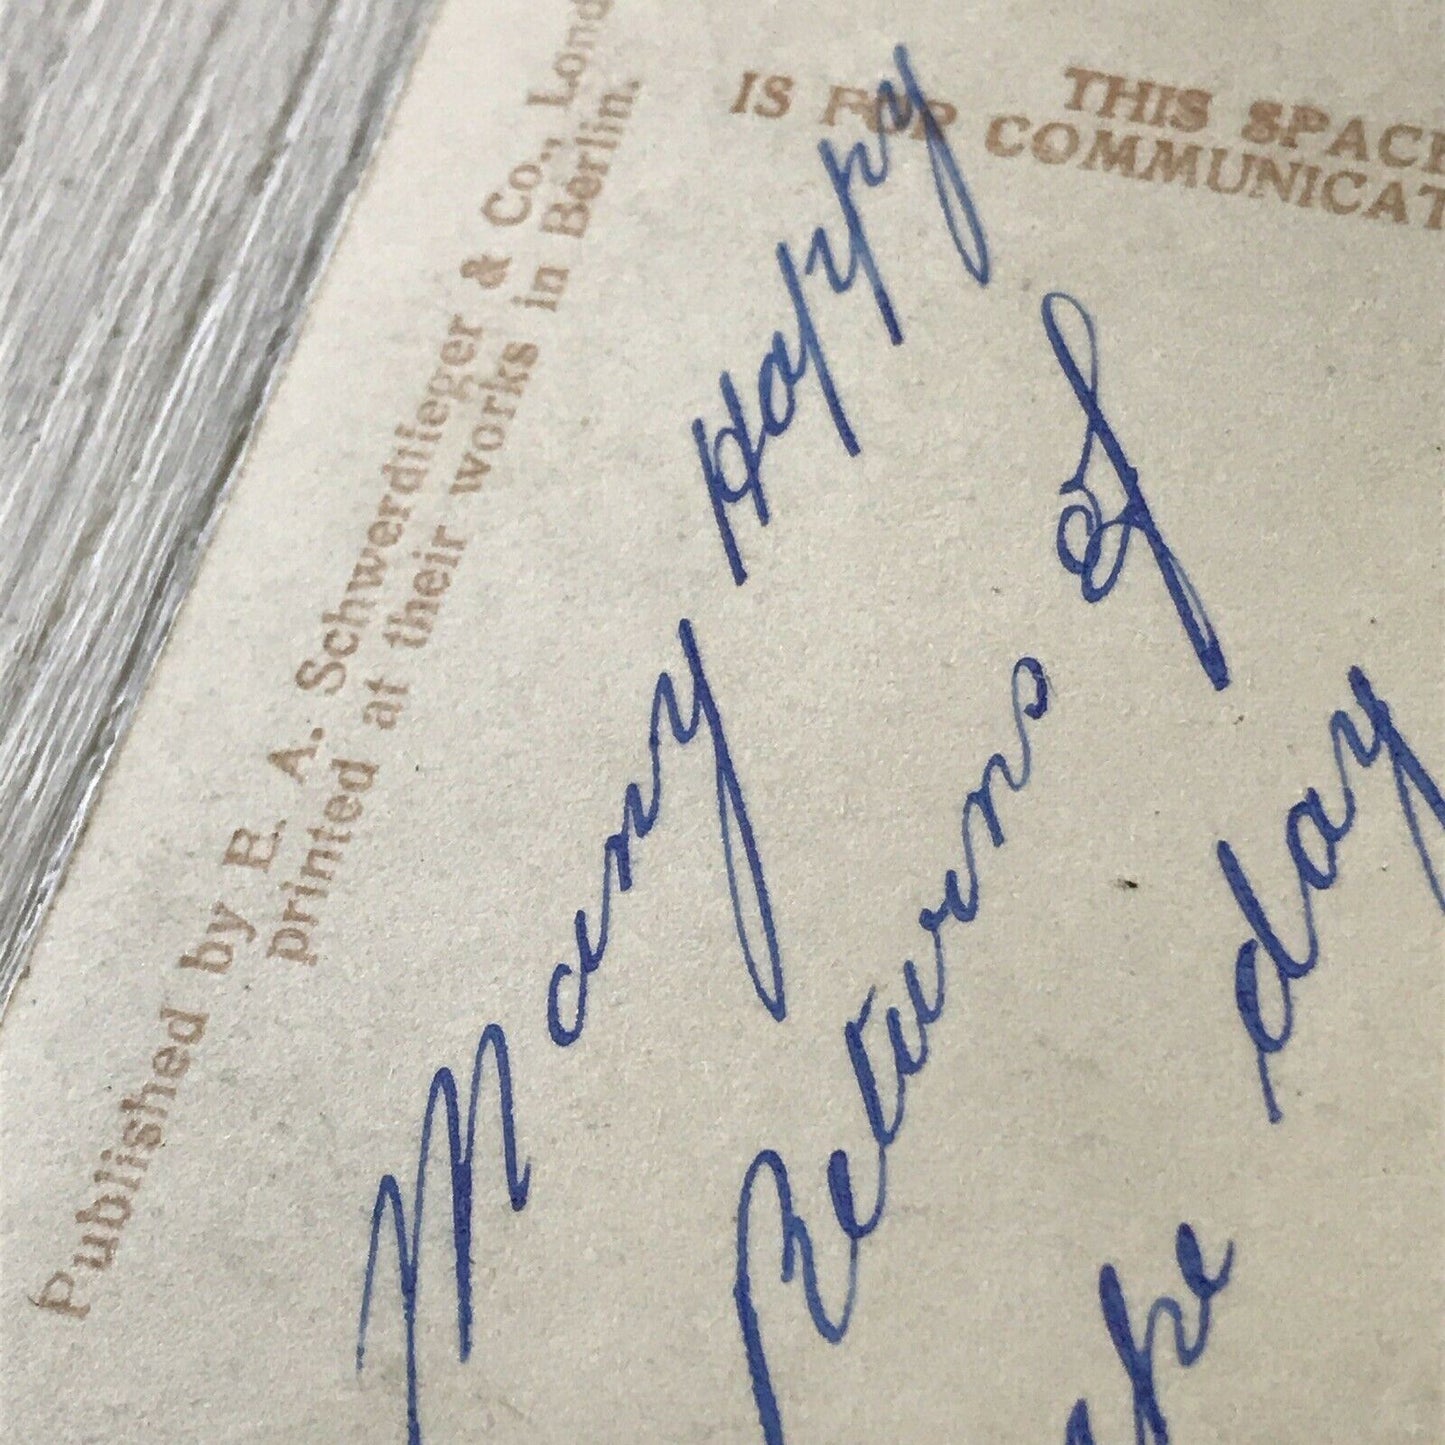 Published by E. A. Schwerdtfeger & Co., Lond
printed at their works in Berlin.
THIS SPACE
IS FOR COMMUNICAT
Many Happy
Returns of
the day